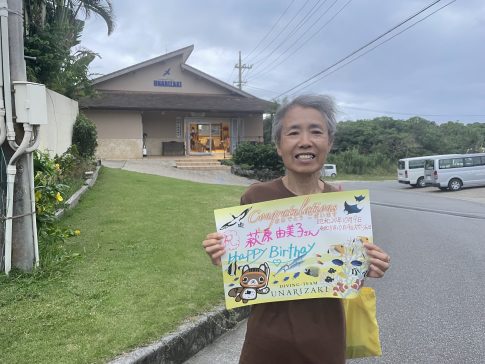 UNARIZAKI
Congratulations
祝
萩原 由美子さん
Happy Birthday
DIVING-TEAM
UNARIZAKI